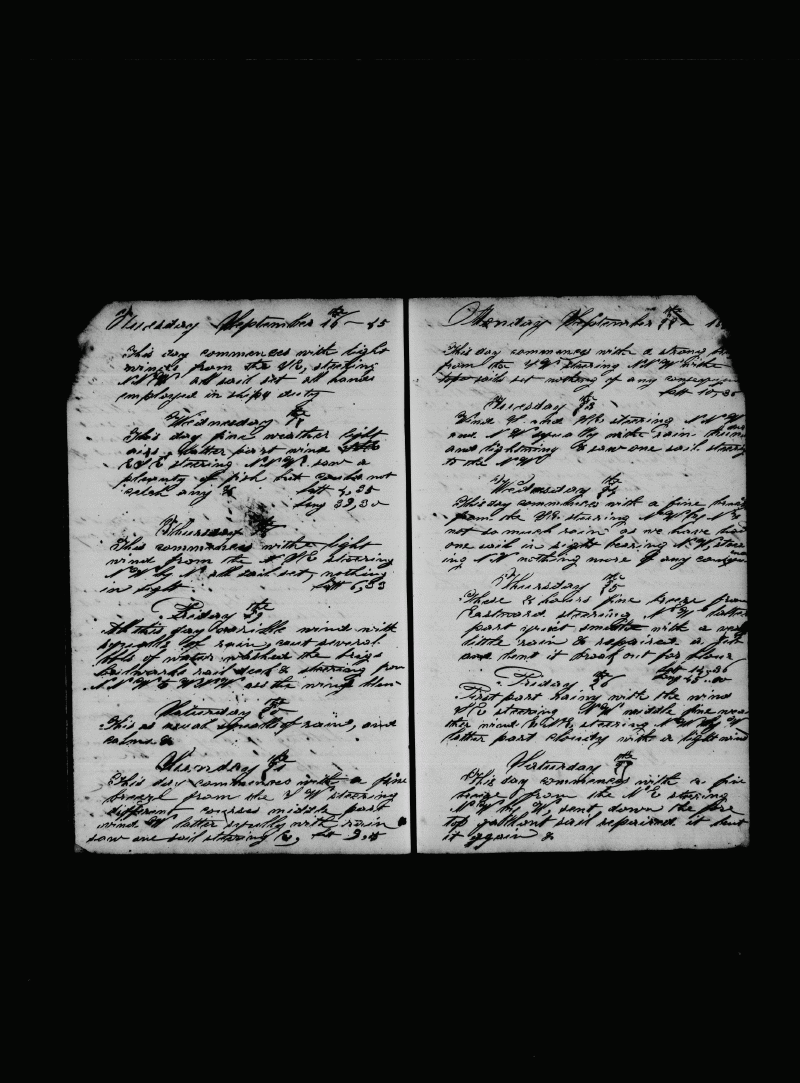 Tuesday September 16th — 45
This day commences with light
winds from the S.E, steering
N.N.W all sail set all hands
employed in ships duty
Wednesday 17th
This day fine weather light
airs, latter part wind
E.S.E steering N.N.W. saw a
plenty of fish but could not
catch any & latt 4,35
Long 33,30
Thursday 18th
This commences with a light
wind from the steering
N.W by N all sail set, nothing
in sight latt 6,53
Friday 19th
All this day variable wind with
squalls of rain, caut several
bbls of water washed the brigs
bulwarks rail deck & steering from
N.N.W to W.S.W as the wind blew
Saturday 20th
This as usual squalls of rain, and
calms &
Sunday 21st
This day commences with a fine
breeze from the S W steering
different courses middle part
wind W latter squally with rain
saw one sail steering E, lat 9,
Monday September 22nd
This day commences with a strong
from the S.W steering N.N.W with
top sails set nothing of any consequence
latt 10,30
Tuesday 23
Wind and steering N.N.W
and N.W squally with rain thunder
and lightning & saw one sail steering
to the N.W
Wednesday 24th
This day commences with a fine breeze
from the steering N.W by N &
not so much rain as we have had
one sail in sight bearing N.W, steer
ing N.W nothing more of any
Thursday 25th
These 24 hours fine breeze from
Eastward steering N.W latter
part quiet smooth with a very
little rain & repaired a jib
and bent it broak out for flour
Lat 14.36
Friday 26th
First part Rainy with the wind
steering middle fine wea
ther wind steering N.W by W
latter part cloudy with a light wind
Saturday 27th
This day commences with a fine
breeze from the N.E steering
N.W by W, sent down the fore
top gallant sail repaired it bent
it again &